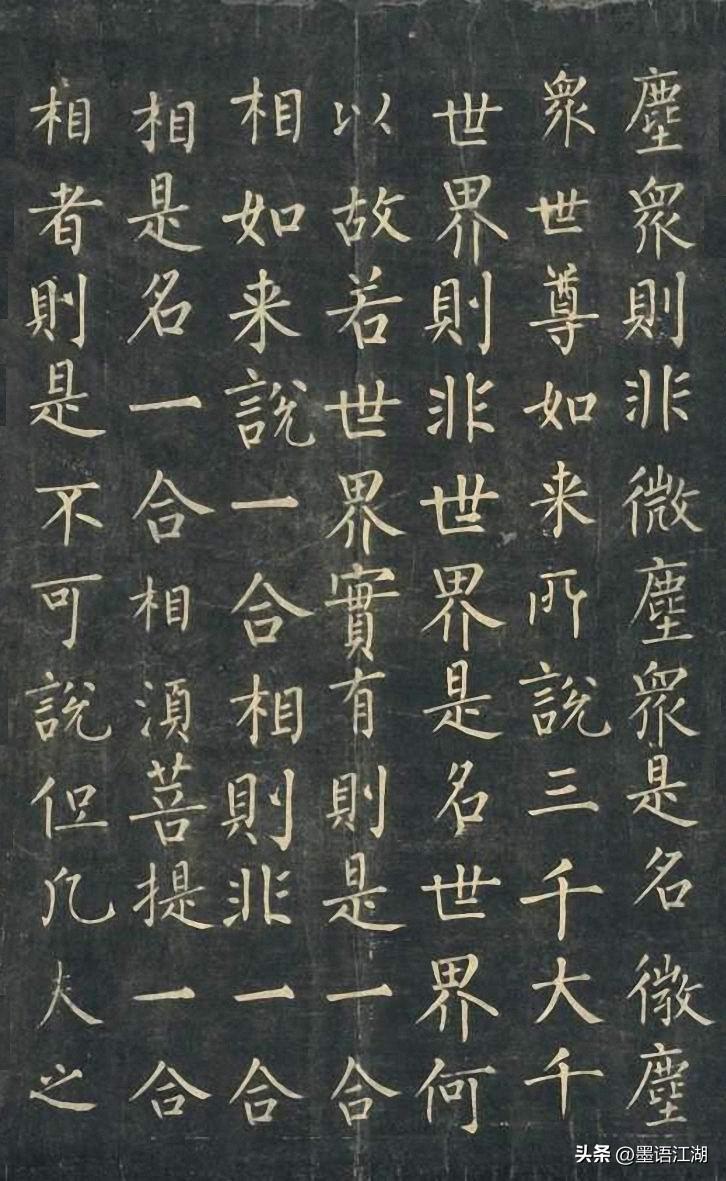 塵衆則非微塵衆是名微塵
衆世尊如来所說三千大千
世界則非世界是名世界何
以故若世界實有則是一合
相如来說一合相則非一合
相是名一合相須菩提一合
相者則是不可說但凡夫之
头条 @墨语江湖